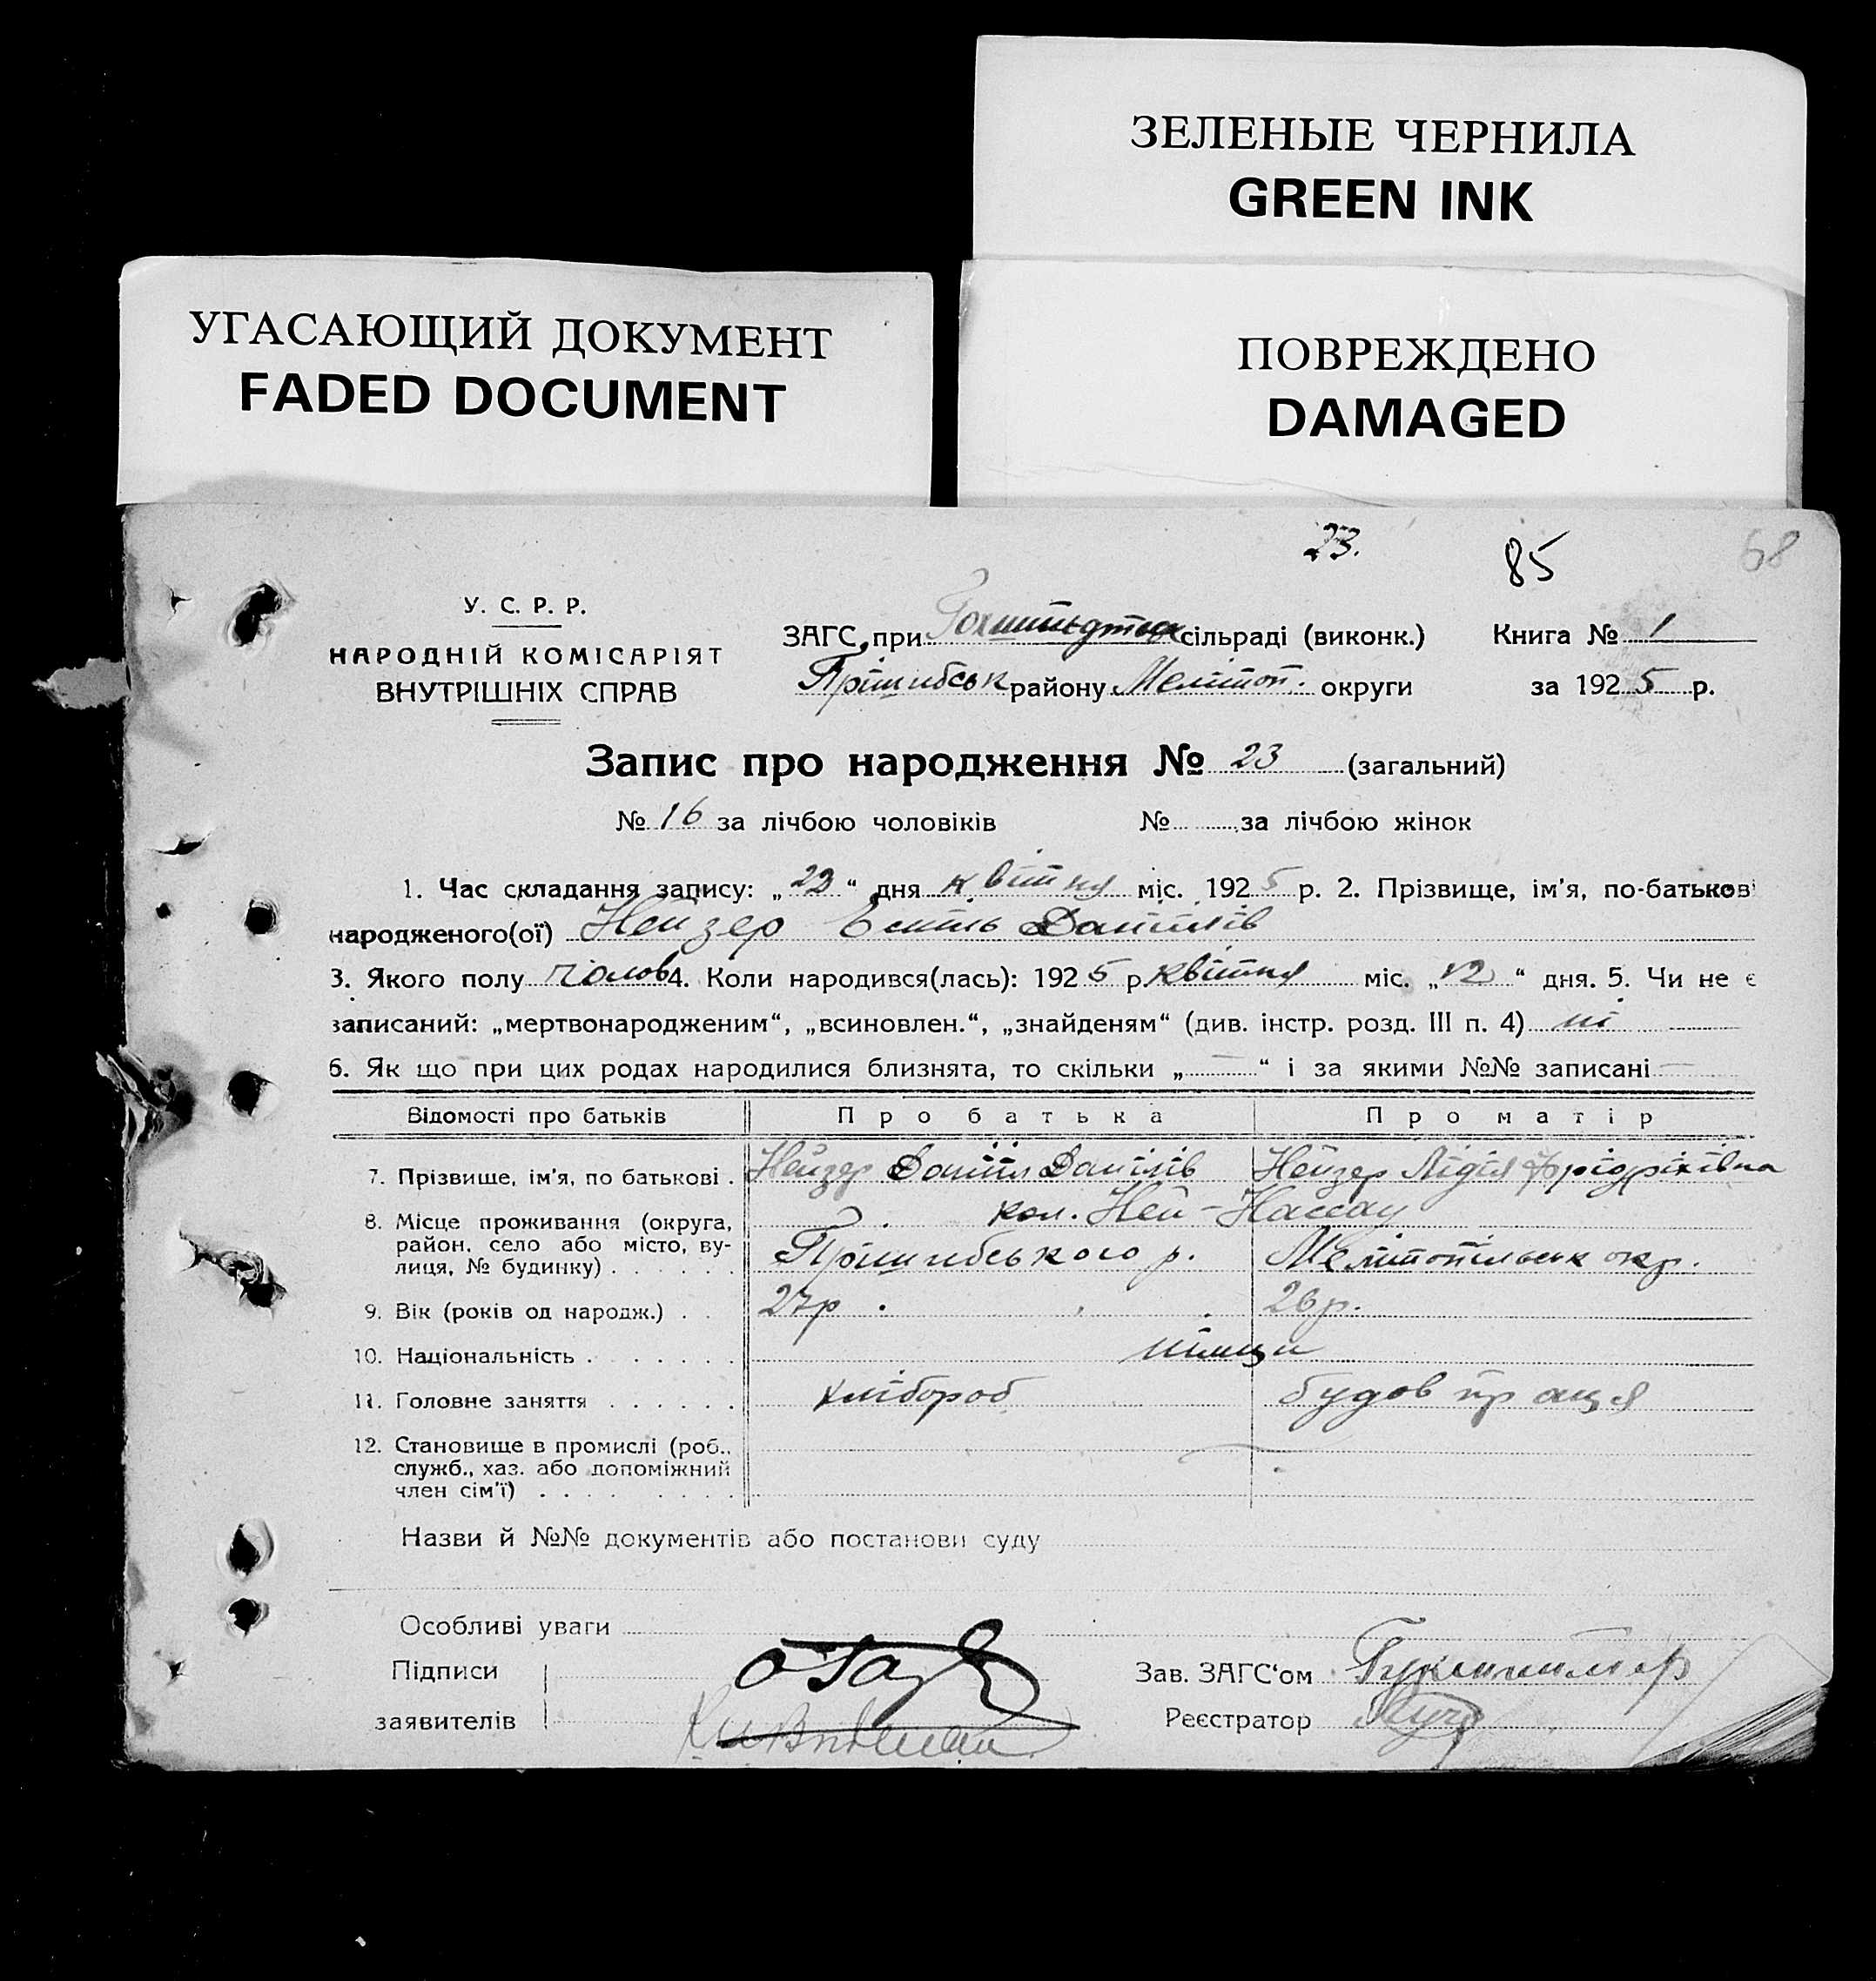 ЗЕЛЕНЫЕ ЧЕРНИЛА
GREEN INK
УГАСАЮЩИЙ ДОКУМЕНТ
FADED DOCUMENT
ПОВРЕЖДЕНО
DAMAGED
23. 85 68
У. С. Р. Р.
НАРОДНІЙ КОМІСАРІЯТ
ВНУТРІШНІХ СПРАВ
ЗАГС при сільраді (виконк.) Книга № 1
Пришибськ району Мелітоп. округи за 1925 р.
Запис про народження № 23 (загальний)
№ 16 за лічбою чоловіків № за лічбою жінок
1. Час складання запису: „22“ дня квітня міс. 1925 р. 2. Прізвище, ім'я, по-батькові
народженого(ої) Нейзер Еміль Данілів
3. Якого полу чолов 4. Коли народився(лась): 1925 р. квітня міс. „12“ дня. 5. Чи не є
записаний: „мертвонародженим“, „всиновлен.“, „знайденям“ (див. інстр. розд. III п. 4) ні
6. Як що при цих родах народилися близнята, то скільки „—“ і за якими №№ записані —
Відомості про батьків Про батька Про матір
7. Прізвище, ім'я, по батькові . Нейзер Даніїл Данілів Нейзер Лідія Фрідріхівна
8. Місце проживання (округа, район, село або місто, вулиця, № будинку) . . . . . . кол. Ней-Нассау
Пришибського р. Мелітопільськ окр.
9. Вік (років од народж.) . . 27р. 26р.
10. Національність . . . . . . . німці
11. Головне заняття . . . . . . хлібороб будов праця
12. Становище в промислі (роб., служб., хаз. або допоміжний член сім'ї) . . . . . . . .
Назви й №№ документів або постанови суду
Особливі уваги
Підписи Зав. ЗАГС'ом
заявителів Реєстратор